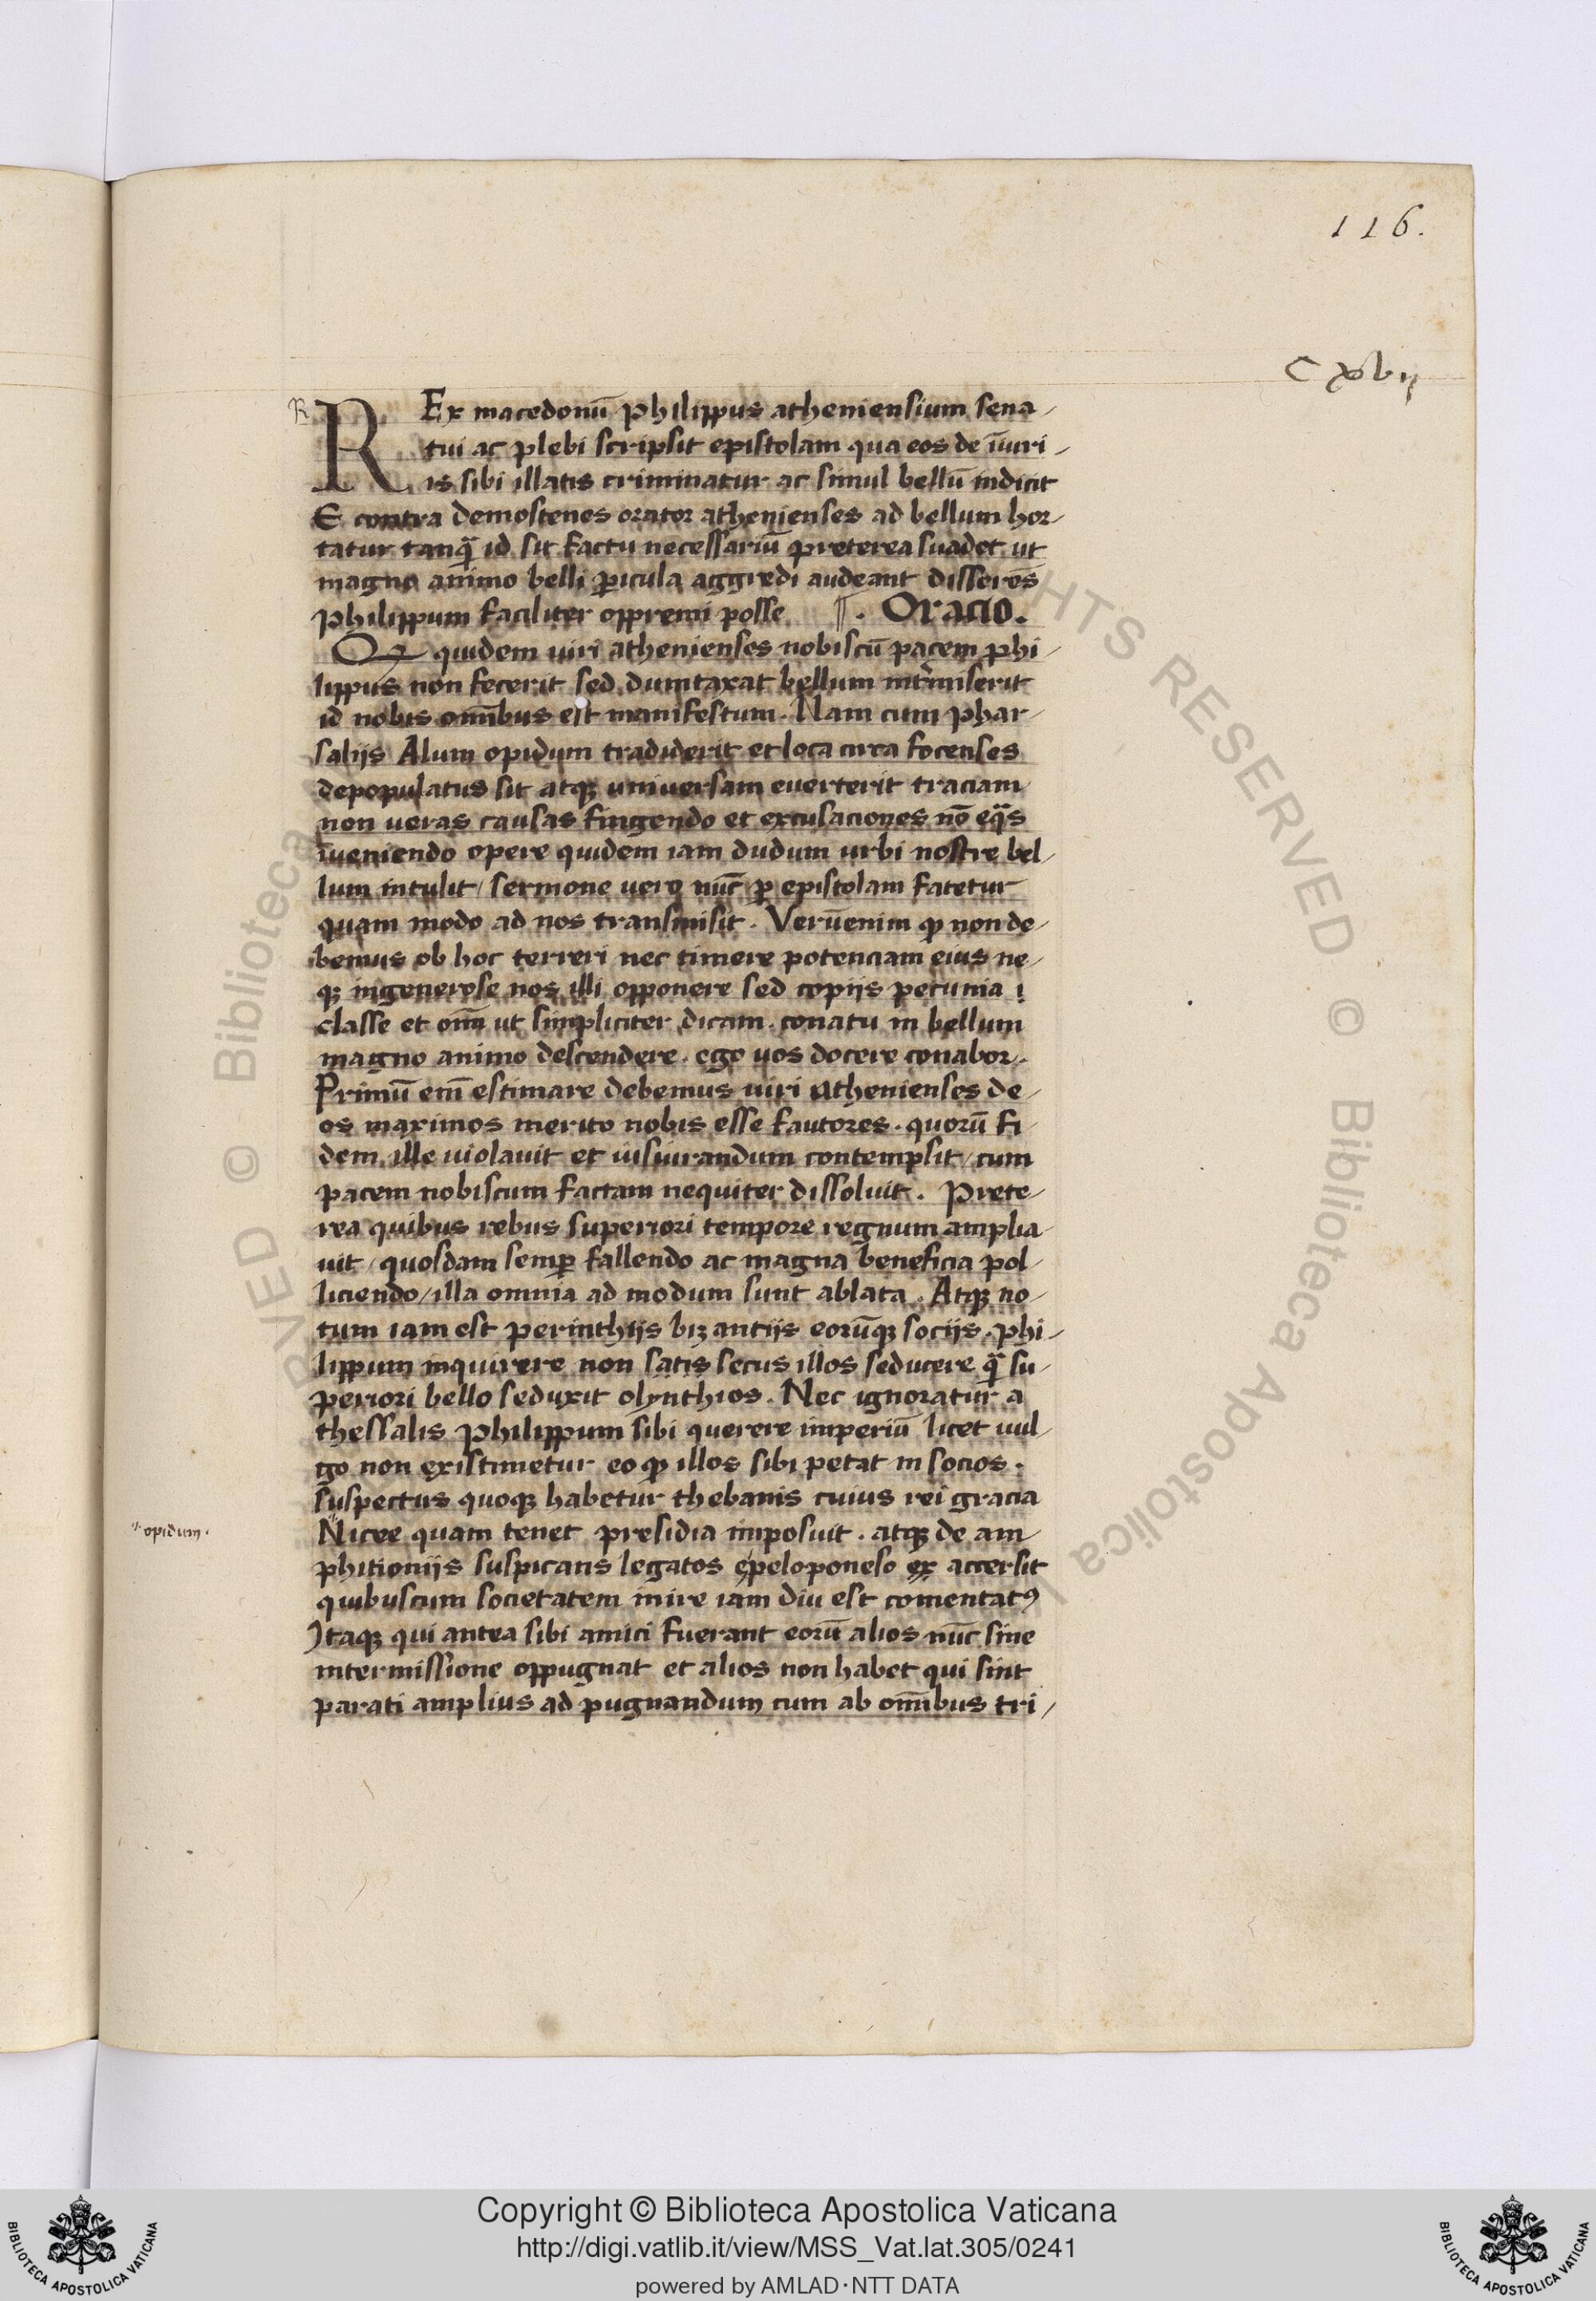 116.
C xvij
R
REx macedonũ philippus atheniensium sena/
tui ac plebi scripsit epistolam qua eos de ĩiuri/
is sibi illatis criminatur ac simul bellũ indicit
E contra demostenes orator athenienses ad bellum hor/
tatur tanq̃ id sit factu necessariũ preterea suadet ut
magno animo belli ꝑicula aggredi audeant disserẽs
philippum faciliter oppremi posse ¶. Oracio.
Qꝫ quidem uiri athenienses nobiscũ pacem phi/
lippus non fecerit sed dumtaxat bellum int̃miserit
id nobis om̃ibus est manifestum. Nam cum phar/
salijs Alum opidum tradiderit et loca circa focenses
depopulatus sit atqꝫ uniuersam euerterit traciam
non ueras causas fingendo et excusaciones nõ eq̃s
ĩueniendo opere quidem iam dudum urbi nostre bel/
lum intulit/ sermone uero nũc ꝑ epistolam fatetur
quam modo ad nos transmisit. Verũenim ꝙ non de/
bemus ob hoc terreri nec timere potenciam eius ne/
qꝫ ingenerose nos illi opponere sed copijs pecunia
classe et om̃i ut simpliciter dicam. conatu in bellum
magno animo descendere. ego uos docere conabor.
Primũ em̃ estimare debemus uiri athenienses de/
os maximos merito nobis esse fautores. quorũ fi/
dem ille uiolauit et iusiurandum contempsit/ cum
pacem nobiscum factam nequiter dissoluit. Prete/
rea quibus rebus superiori tempore regnum amplia
uit/ quosdam semꝑ fallendo ac magna beneficia pol/
liciendo/ illa omnia ad modum sunt ablata. Atqꝫ no/
tum iam est perinthijs bizantijs eorũqꝫ socijs. phi/
lippum inquirere non satis secus illos seducere q̃ su/
periori bello seduxit olynthios. Nec ignoratur a
thessalis philippum sibi querere imperiũ licet uul/
go non existimetur eo ꝙ illos sibi petat in socios.
suspectus quoqꝫ habetur thebanis cuius rei gracia
Nicee quam tenet presidia imposuit. atqꝫ de am/
opidum.
phitionijs suspicans legatos e peloponeso ex accersit
quibuscum societatem inire iam diu est comentatꝰ
Itaqꝫ qui antea sibi amici fuerant eorũ alios nũc sine
intermissione oppugnat et alios non habet qui sint
parati amplius ad pugnandum cum ab om̃ibus tri/
Copyright © Biblioteca Apostolica Vaticana
http://digi.vatlib.it/view/MSS_Vat.lat.305/0241
powered by AMLAD·NTT DATA